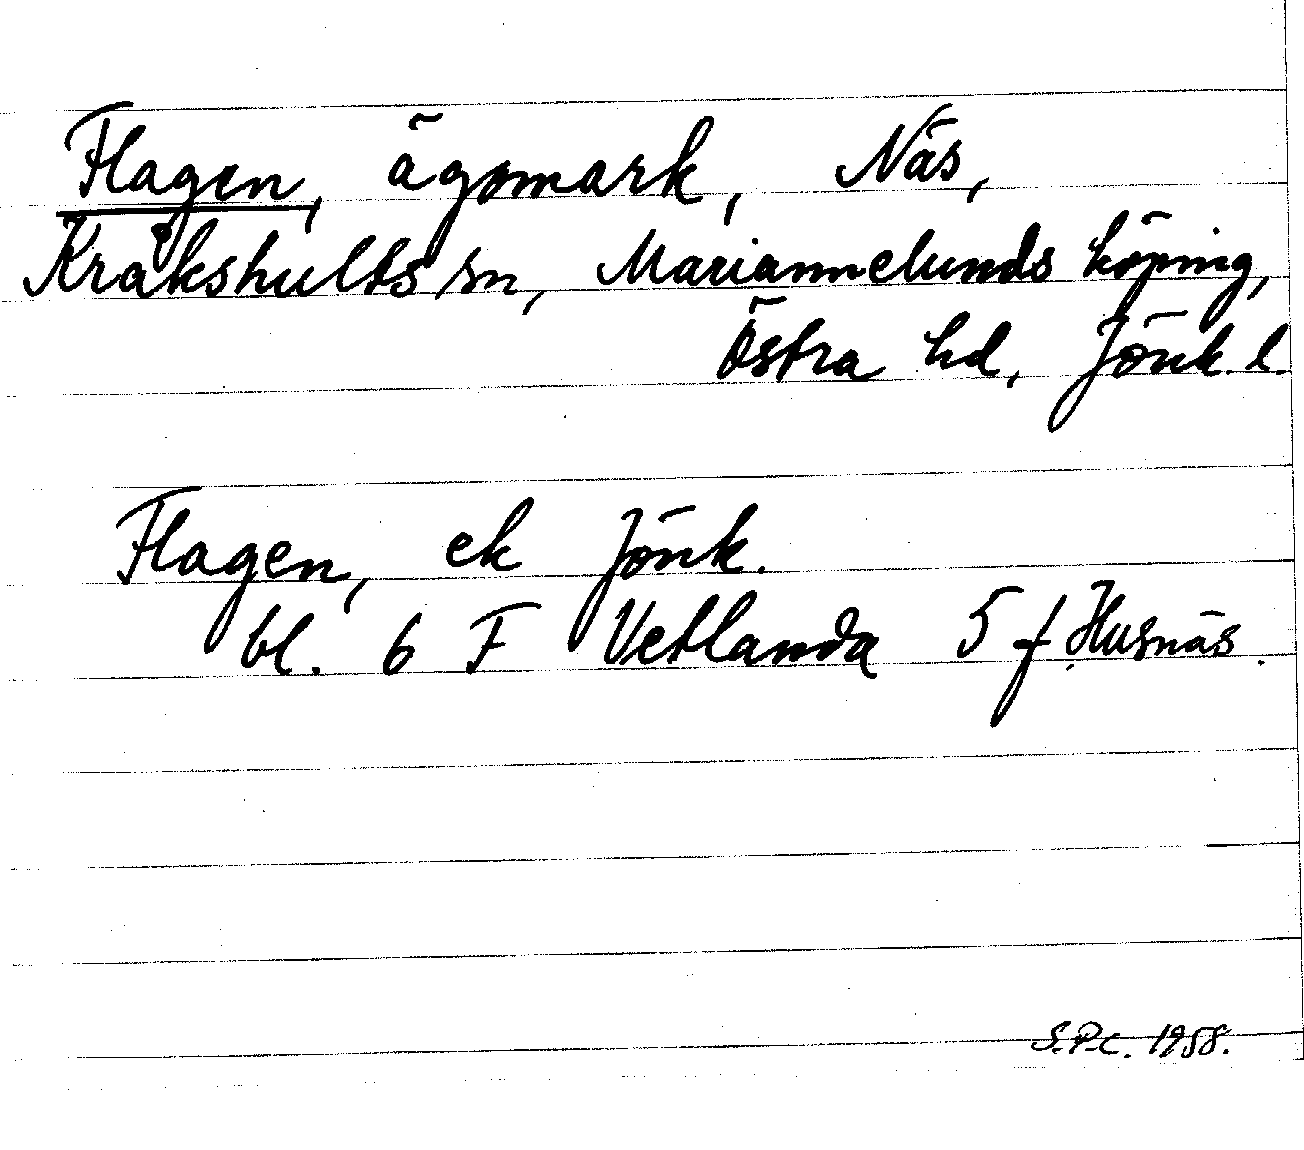 Flagen, ägomark, Näs,
Kråkshults sn, Mariannelunds köping,
Östra hd, Jönk. l.
Flagen, ek Jönk.
bl. 6 F Vetlanda 5 f Husnäs.
S.P.C. 1958.